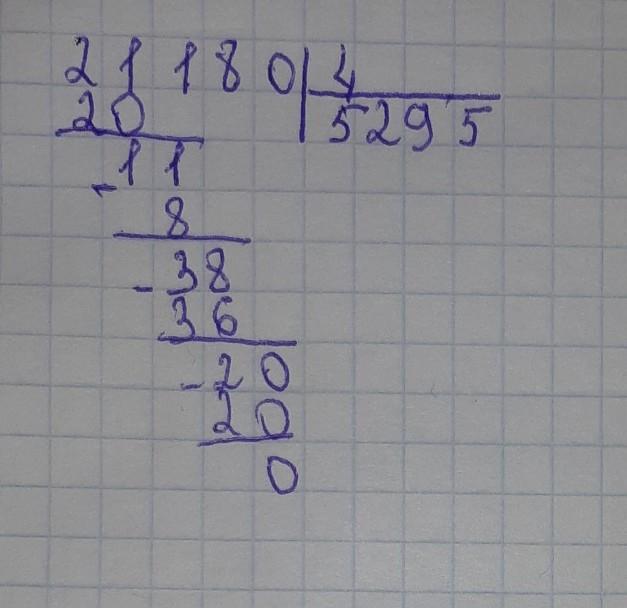 21180 4
20 5295
-11
8
-38
36
-20
20
0